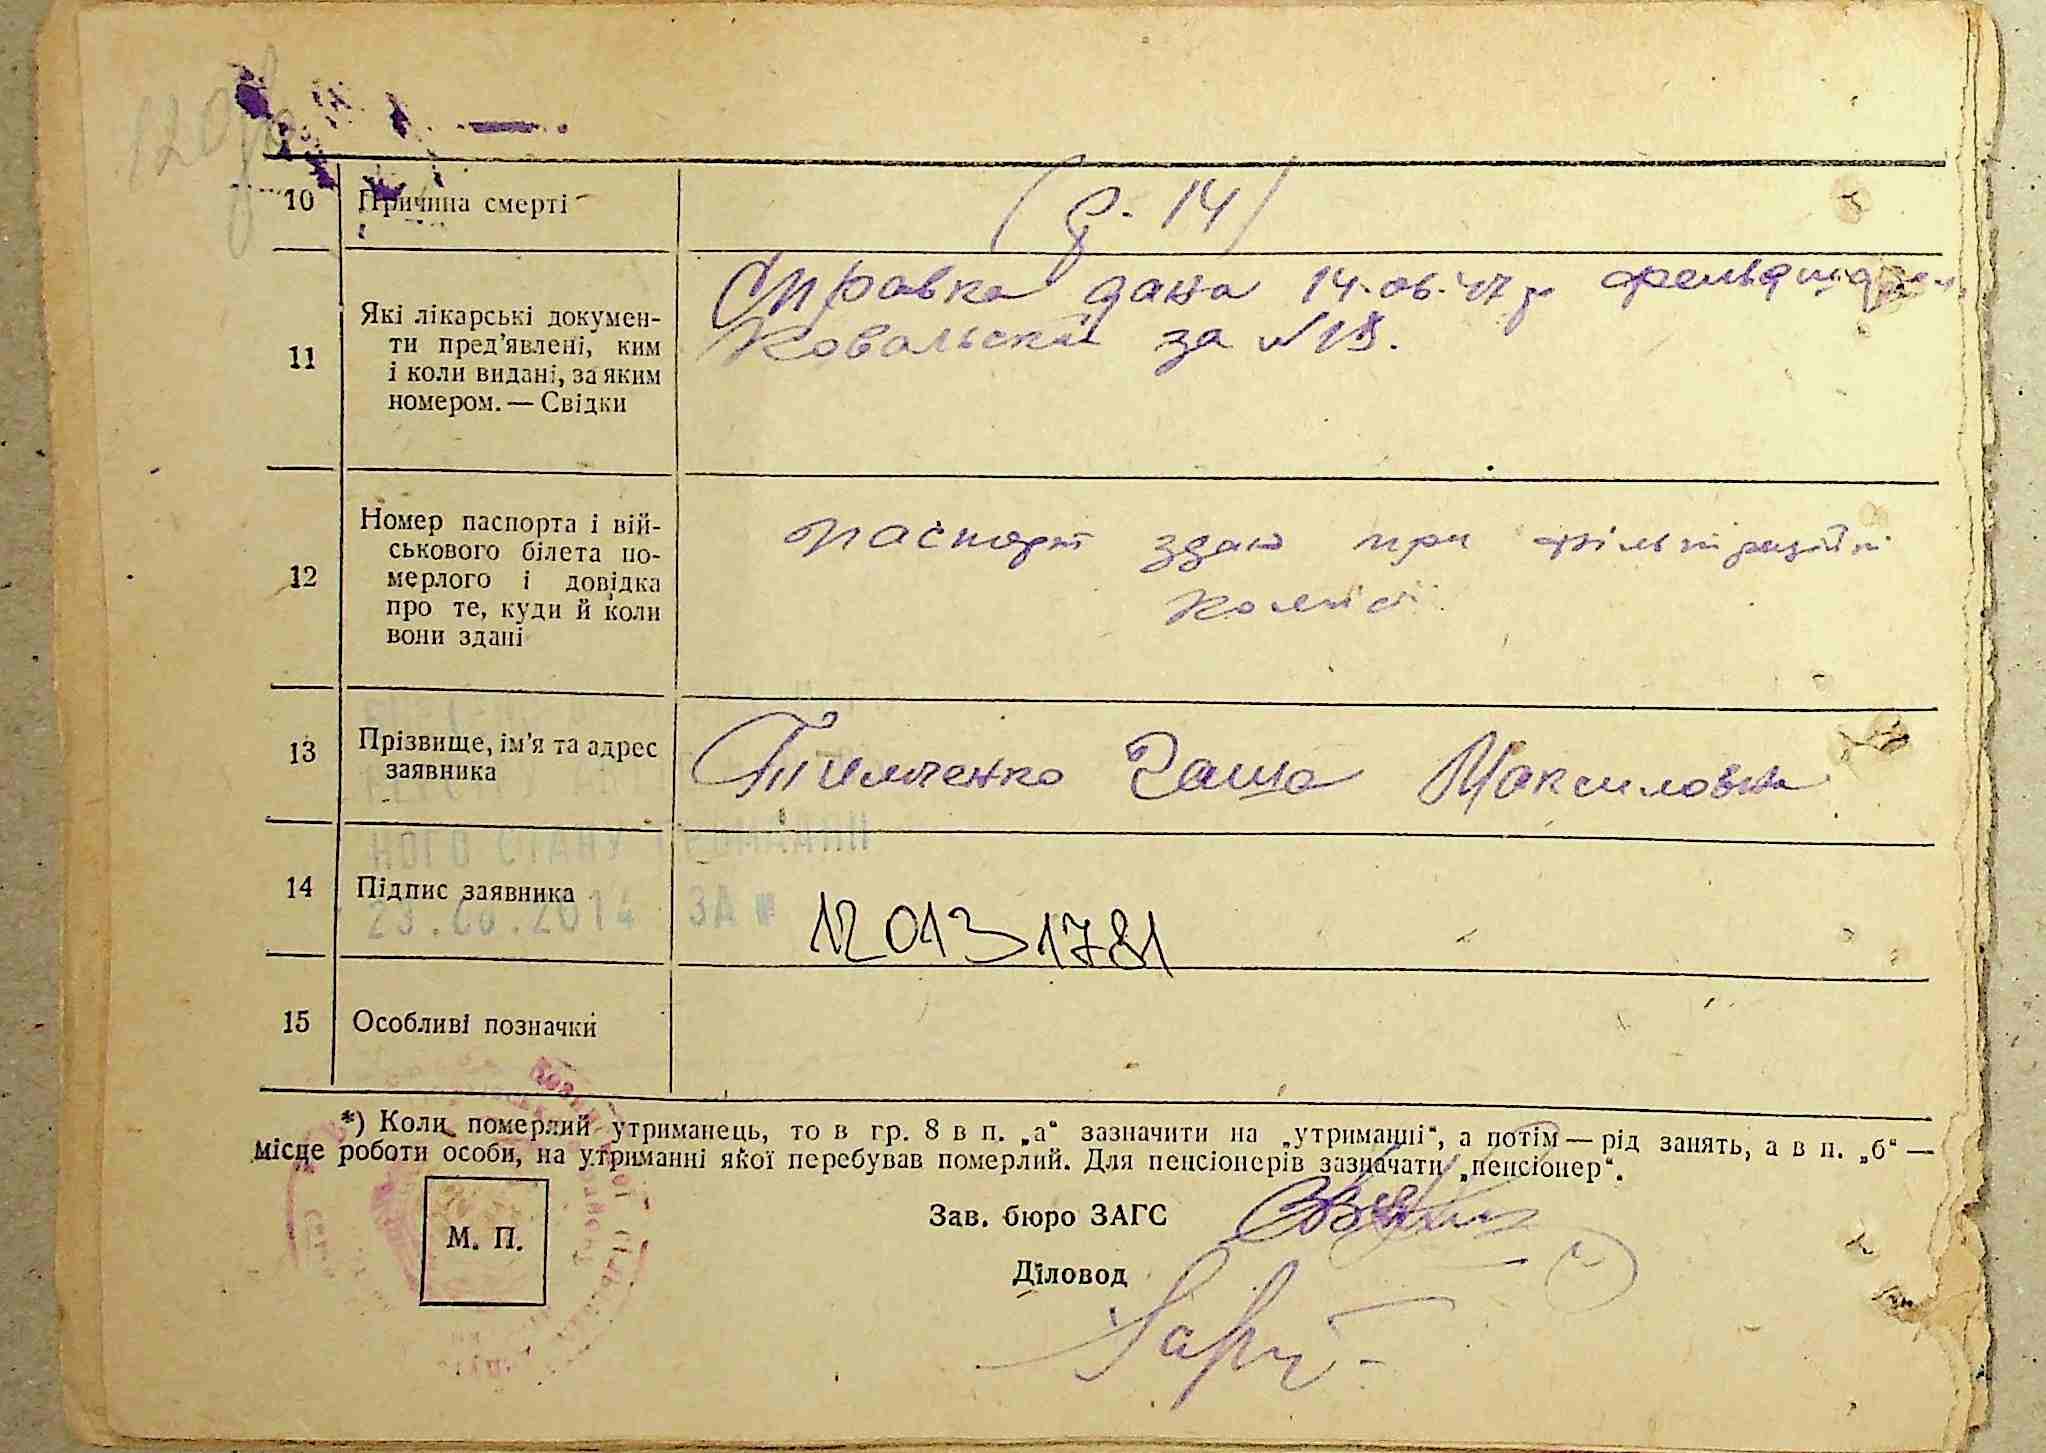 10 Причина смерті
( р. 14 /
11 Які лікарські докумен-
ти пред'явлені, ким
і коли видані, за яким
номером. — Свідки
Справка дана 14.06.47 р
Ковальскій за №
12 Номер паспорта і вій-
ськового білета по-
мерлого і довідка
про те, куди й коли
вони здані
паспорт здан при фільтраційні
комісії
13 Прізвище, ім'я та адрес
заявника
Тимченко Даша Максимовна
НОГО СТАНУ ГРОМАДЯН
14 Підпис заявника
2014 ЗА №
120131781
15 Особливі позначки
*) Коли померлий утриманець, то в гр. 8 в п. „а“ зазначити на „утриманні“, а потім — рід занять, а в п. „б“ —
місце роботи особи, на утриманні якої перебував померлий. Для пенсіонерів зазначати „пенсіонер“.
М. П.
Зав. бюро ЗАГС
Діловод